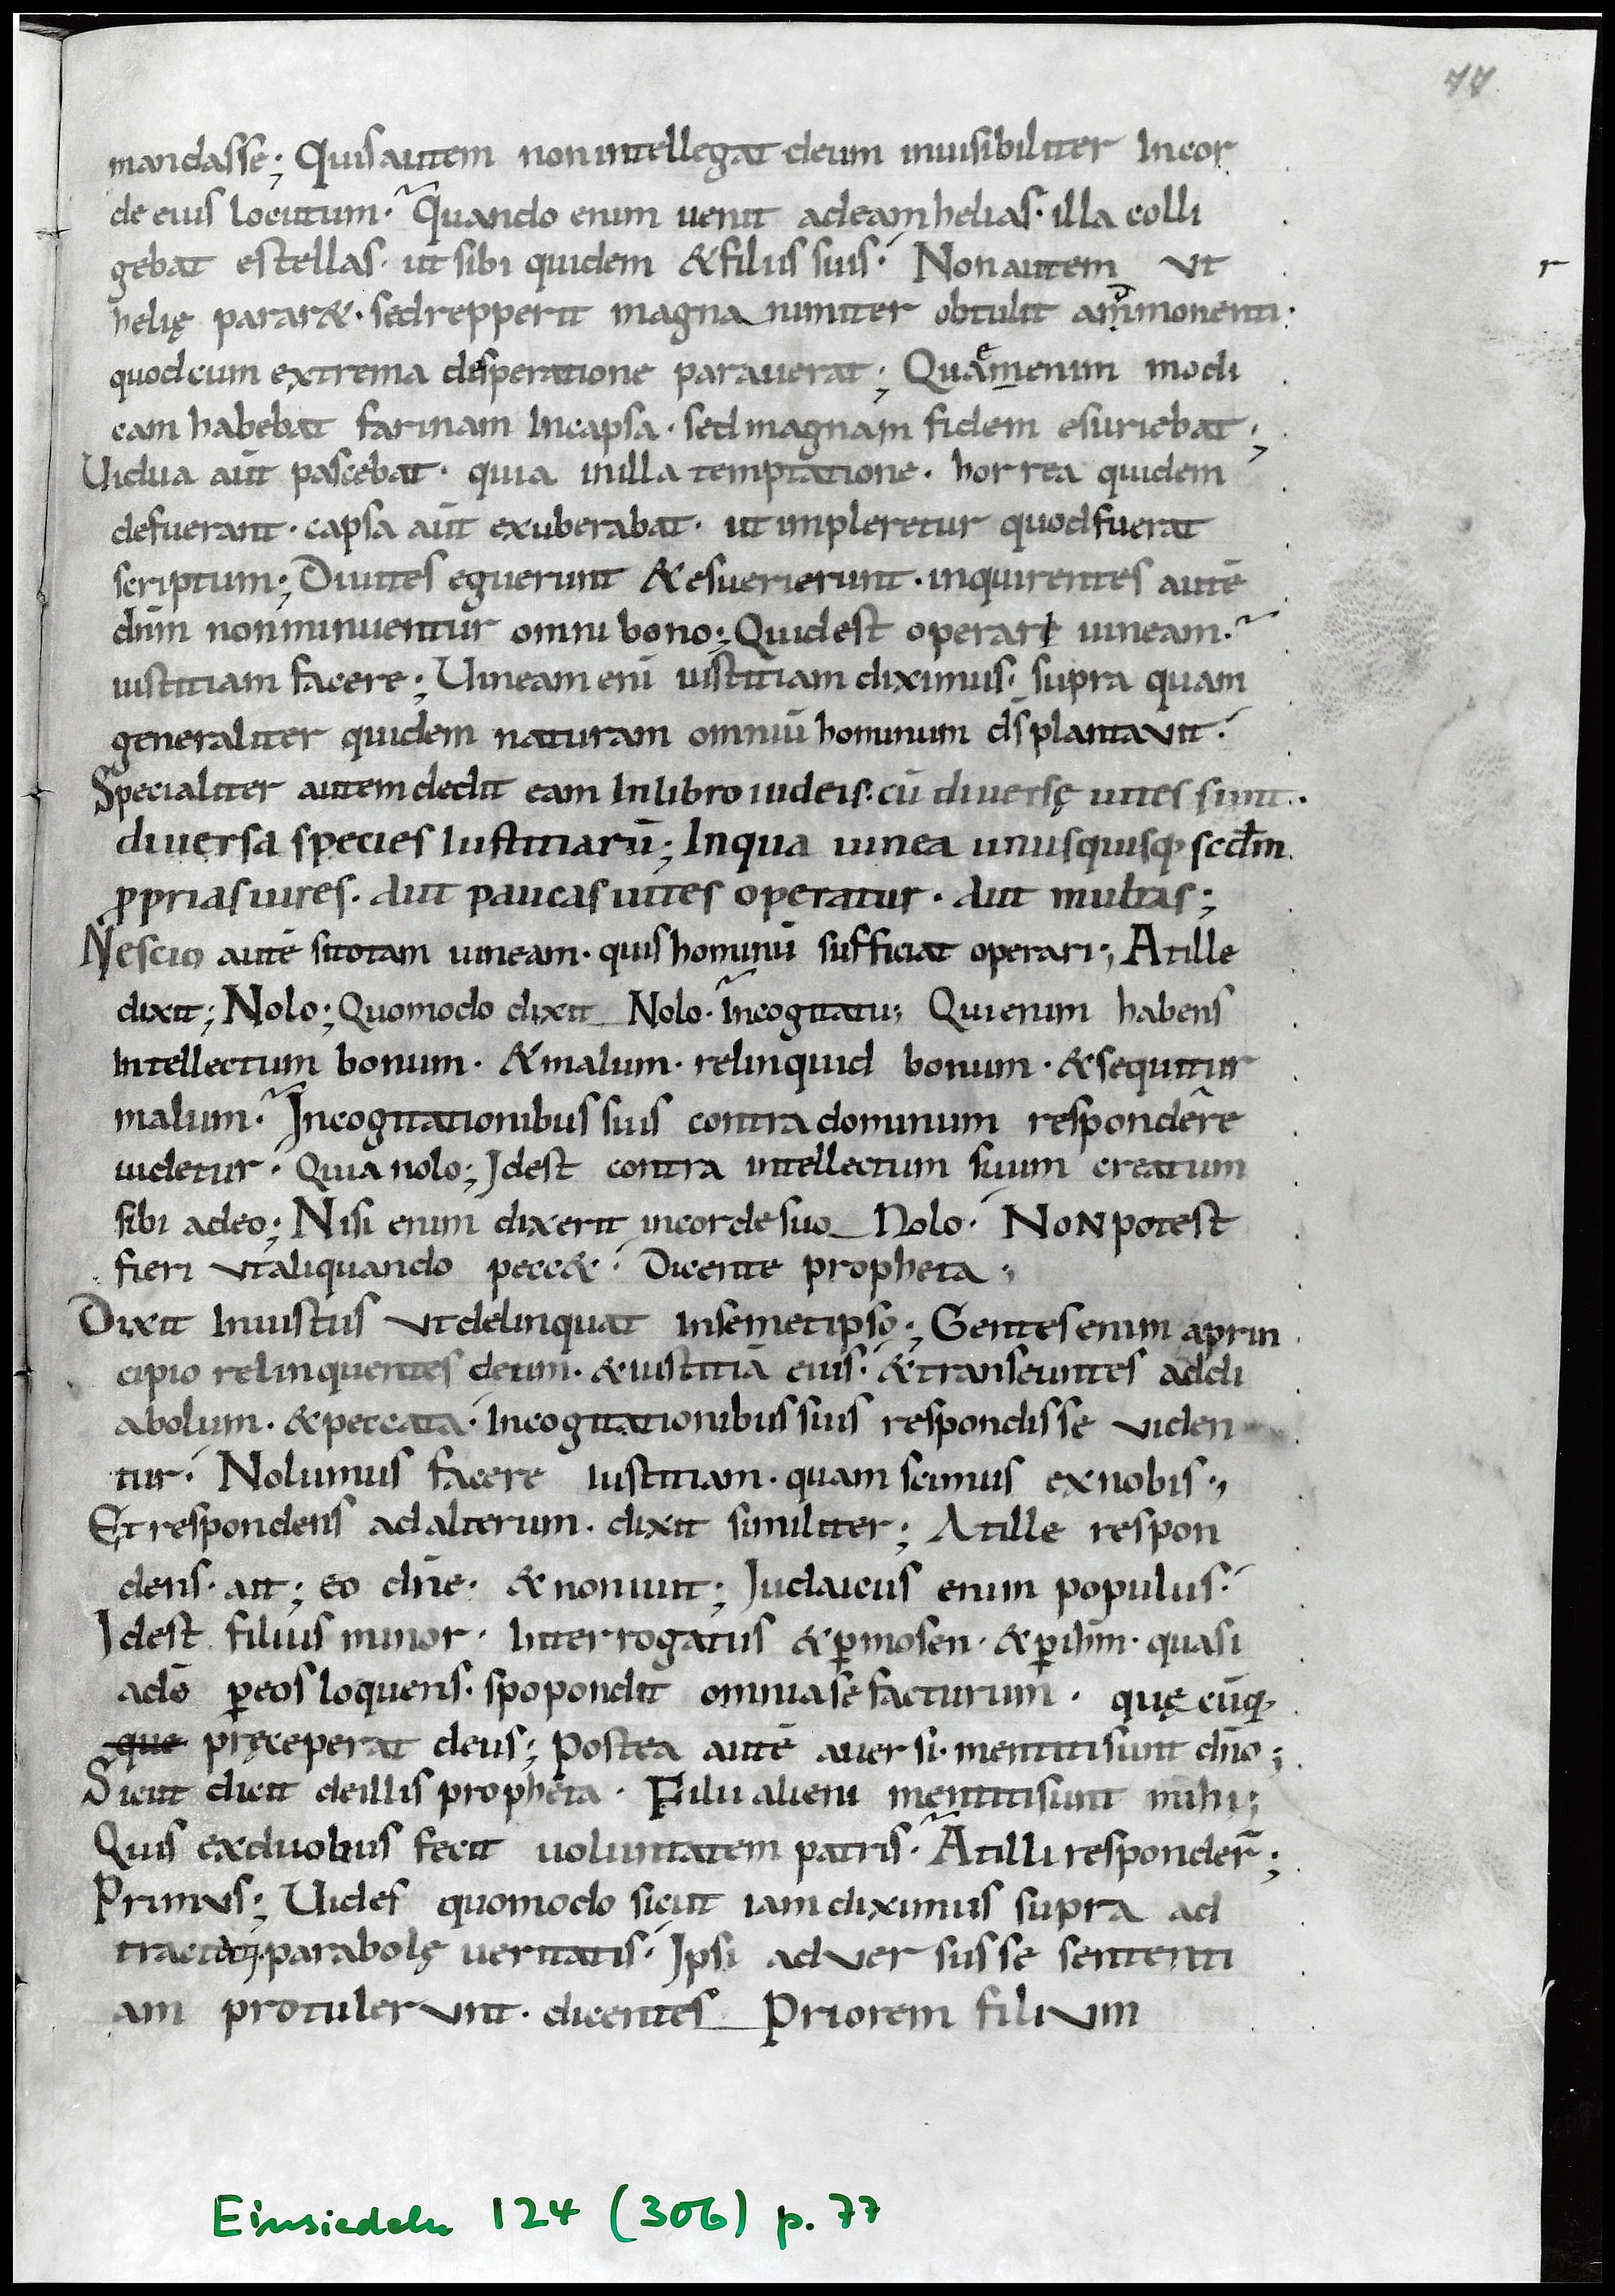 77
mandasse; Quis autem non intellegat deum inuisibiliter In cor
de eius locutum· Quando enim uenit ad eam helias· illa colli
gebat estellas· ut sibi quidem & filiis suis· Non autem ut
helię parar&· sed repperit magnanimiter obtulit ammonenti·
quod cum extrema desperatione parauerat; Quam enim modi
cam habebat farinam In capsa· sed magnam fidem esuriebat;
Uidua aūt pascebat· quia in illa temptatione· horrea quidem
defuerant· capsa aūt exuberabat· ut impleretur quod fuerat
scriptum; Diuites eguerunt & esuerierunt· inquirentes autē
dn̄m non minuentur omni bono; Quid est operari uineam·
iustitiam facere; Uineam enī iustitiam diximus· supra quam
generaliter quidem naturam omniū hominum ds̄ plantauit·
Specialiter autem dedit eam In libro iudeis· cū diuersę uites sunt·
diuersa species Iustitiarū; In qua uinea unusquisq· scdm
ꝓprias uires· Aut paucas uites operatur· Aut multas;
Nescio autē si totam uineam· quis hominū sufficiat operari; At ille
dixit; Nolo; Quomodo dixit Nolo· In cogitatu; Qui enim habens
Intellectum bonum· & malum· relinquid bonum· & sequitur
malum· In cogitationibus suis contra dominum respondere
uidetur· Quia nolo; Id est contra intellectum suum creatum
sibi a deo; Nisi enim dixerit in corde suo Nolo· Non potest
fieri ut aliquando pecc&· Dicente propheta;
Dixit Iniustus ut delinquat In semetipso; Gentes enim a prin
cipio relinquentes deum· & iustitiā eius· & transeuntes ad di
abolum· & peccata· In cogitationibus suis respondisse uiden
tur· Nolumus facere Iustitiam· quam scimus ex nobis;
Et respondens ad alterum· dixit similiter; At ille respon
dens· ait; eo dn̄e· & non iuit; Iudaicus enim populus·
Id est filius minor· Interrogatus & ꝑ mosen· & ꝑ ihm̄· quasi
a dō ꝑ eos loquens· spopondit omnia se facturum· quę cūq·
que pręceperat deus; Postea autē auersi· mentiti sunt dn̄o;
Sicut dicit de illis propheta· Filii alieni mentiti sunt mihi;
Quis ex duobus fecit uoluntatem patris· At illi responder̄;
Primus; Uides quomodo sicut iam diximus supra ad
tracti parabolę ueritatis· Ipsi aduersus se sententi
am protulerunt· dicentes Priorem filium
Einsiedeln 124 (306) p. 77